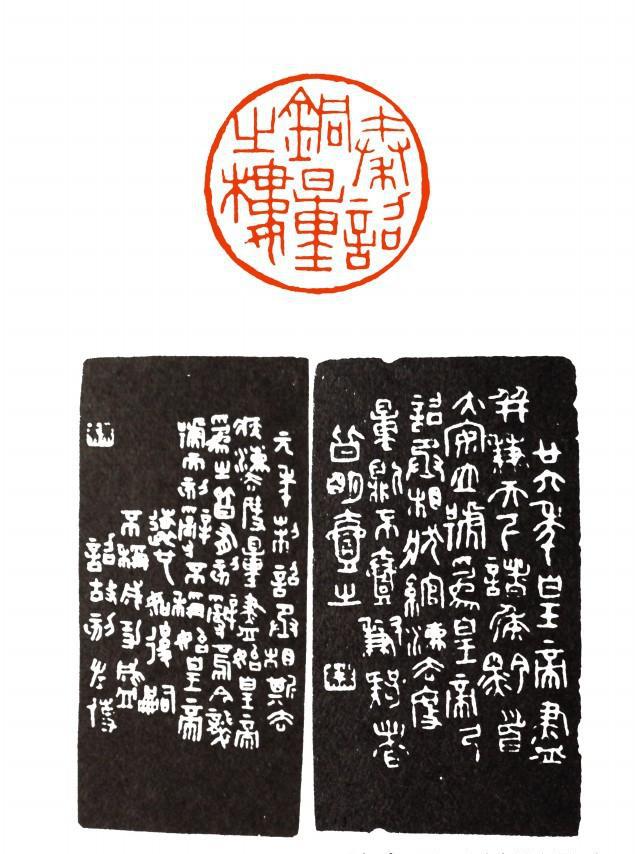 秦詔
銅量
之樓
廿六年皇帝盡
并兼天下諸侯黔首
大安立號為皇帝乃
詔丞相狀綰灋度
量則不壹歉疑者
皆明壹之
元年制詔丞相斯去
疾灋度量盡始皇帝
為之皆有刻辭焉今襲
號而刻辭不稱始皇帝
遠也如後嗣
不稱成功盛
詔故刻左使